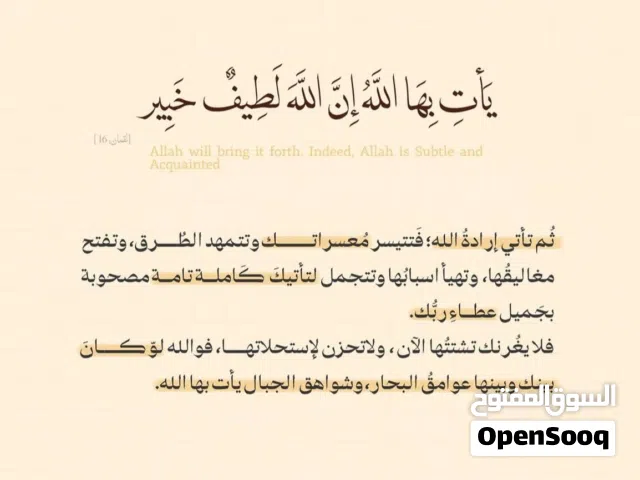 يَأْتِ بِهَا اللَّهُ إِنَّ اللَّهَ لَطِيفٌ خَبِير
[لقمان:16]
Allah will bring it forth. Indeed, Allah is Subtle and
Acquainted
ثُم تأتي إرادةُ الله؛ فَتتيسر مُعسراتـــــك وتتمهد الطُـرق، وتفتح
مغاليقُها، وتهيأ اسبابُها وتتجمل لتأتيكَ كَاملـة تامـة مصحوبة
بجَميل عطـاءِ ربُّك.
فلا يغُرنك تشتتُها الآن ، ولاتحزن لإستحلاتهـا، فوالله لوّ كـــانَ
بينك وبينها عوامقُ البحار، وشواهق الجبال يأت بها الله.
السوق المفتوح
OpenSooq